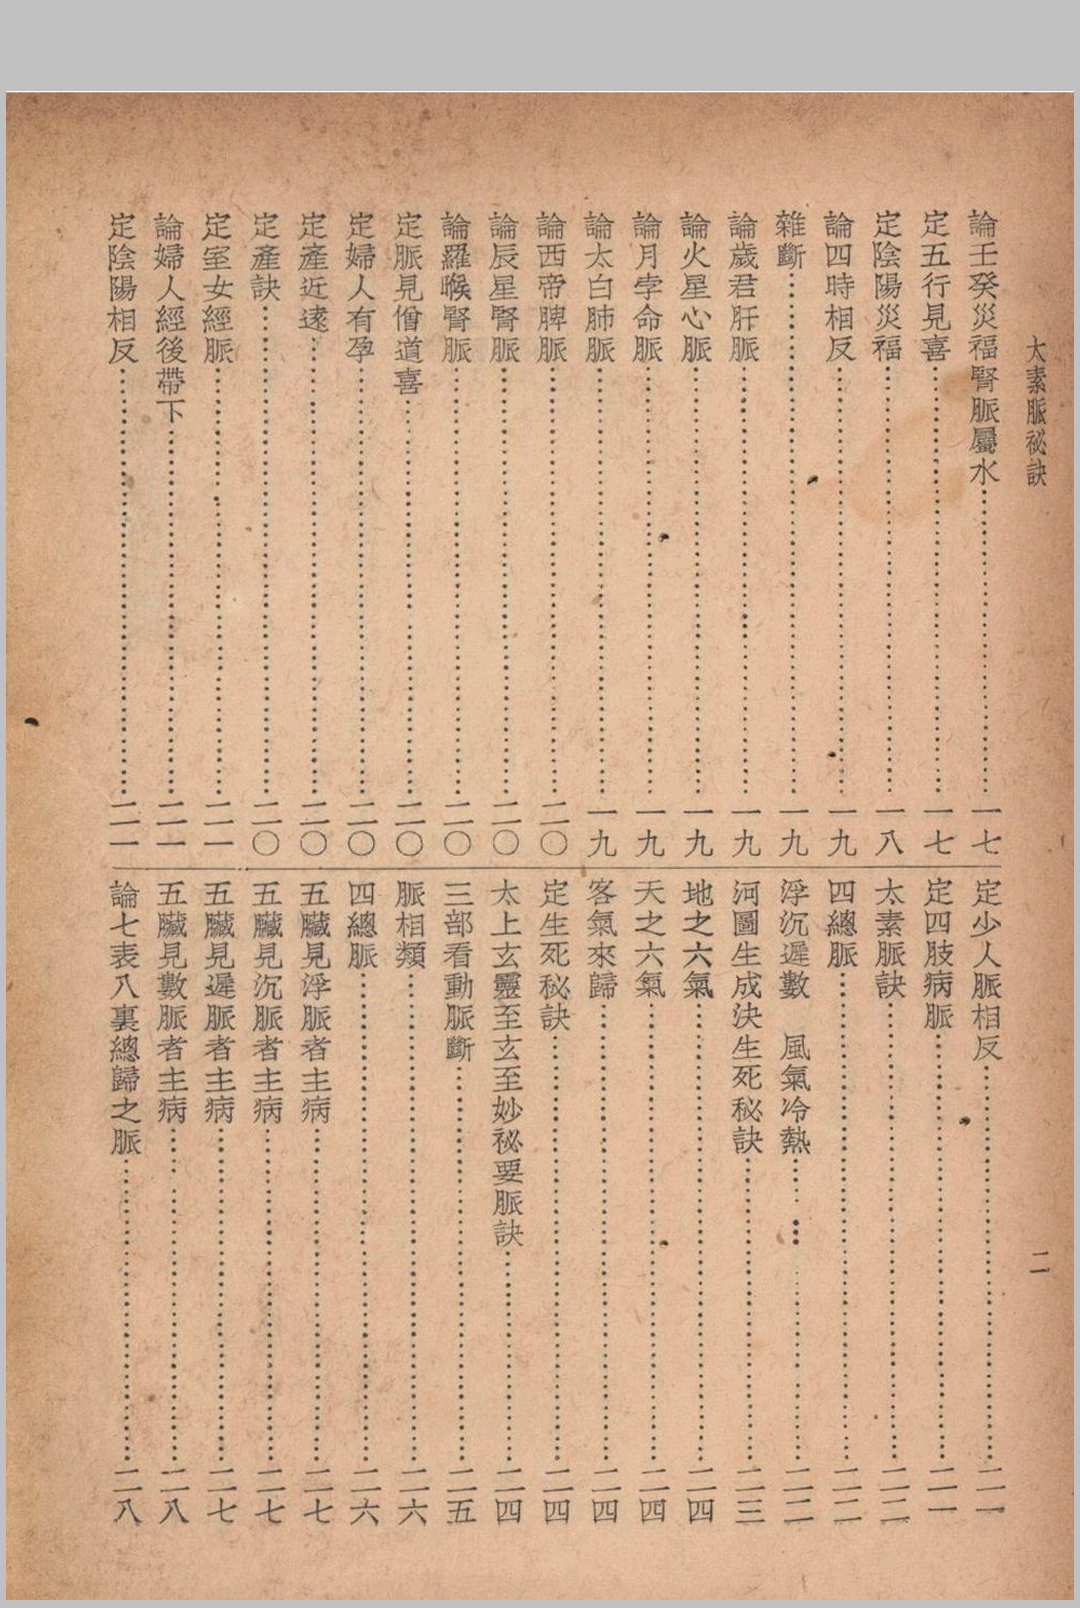 太素脈祕訣
二
論壬癸災福腎脈屬水……一七
定五行見喜……一七
定陰陽災福……一八
論四時相反……一九
雜斷……一九
論歲君肝脈……一九
論火星心脈……一九
論月孛命脈……一九
論太白肺脈……一九
論西帝脾脈……二〇
論辰星腎脈……二〇
論羅睺腎脈……二〇
定脈見僧道喜……二〇
定婦人有孕……二〇
定產近遠……二〇
定產訣……二〇
定室女經脈……二一
論婦人經後帶下……二一
定陰陽相反……二一
定少人脈相反……二一
定四肢病脈……二一
太素脈訣……二二
四總脈……二二
浮沉遲數　風氣冷熱……二二
河圖生成決生死秘訣……二三
地之六氣……二四
天之六氣……二四
客氣來歸……二四
定生死秘訣……二四
太上玄靈至玄至妙祕要脈訣……二四
三部看動脈斷……二五
脈相類……二六
四總脈……二六
五臟見浮脈者主病……二七
五臟見沉脈者主病……二七
五臟見遲脈者主病……二七
五臟見數脈者主病……二八
論七表八裏總歸之脈……二八